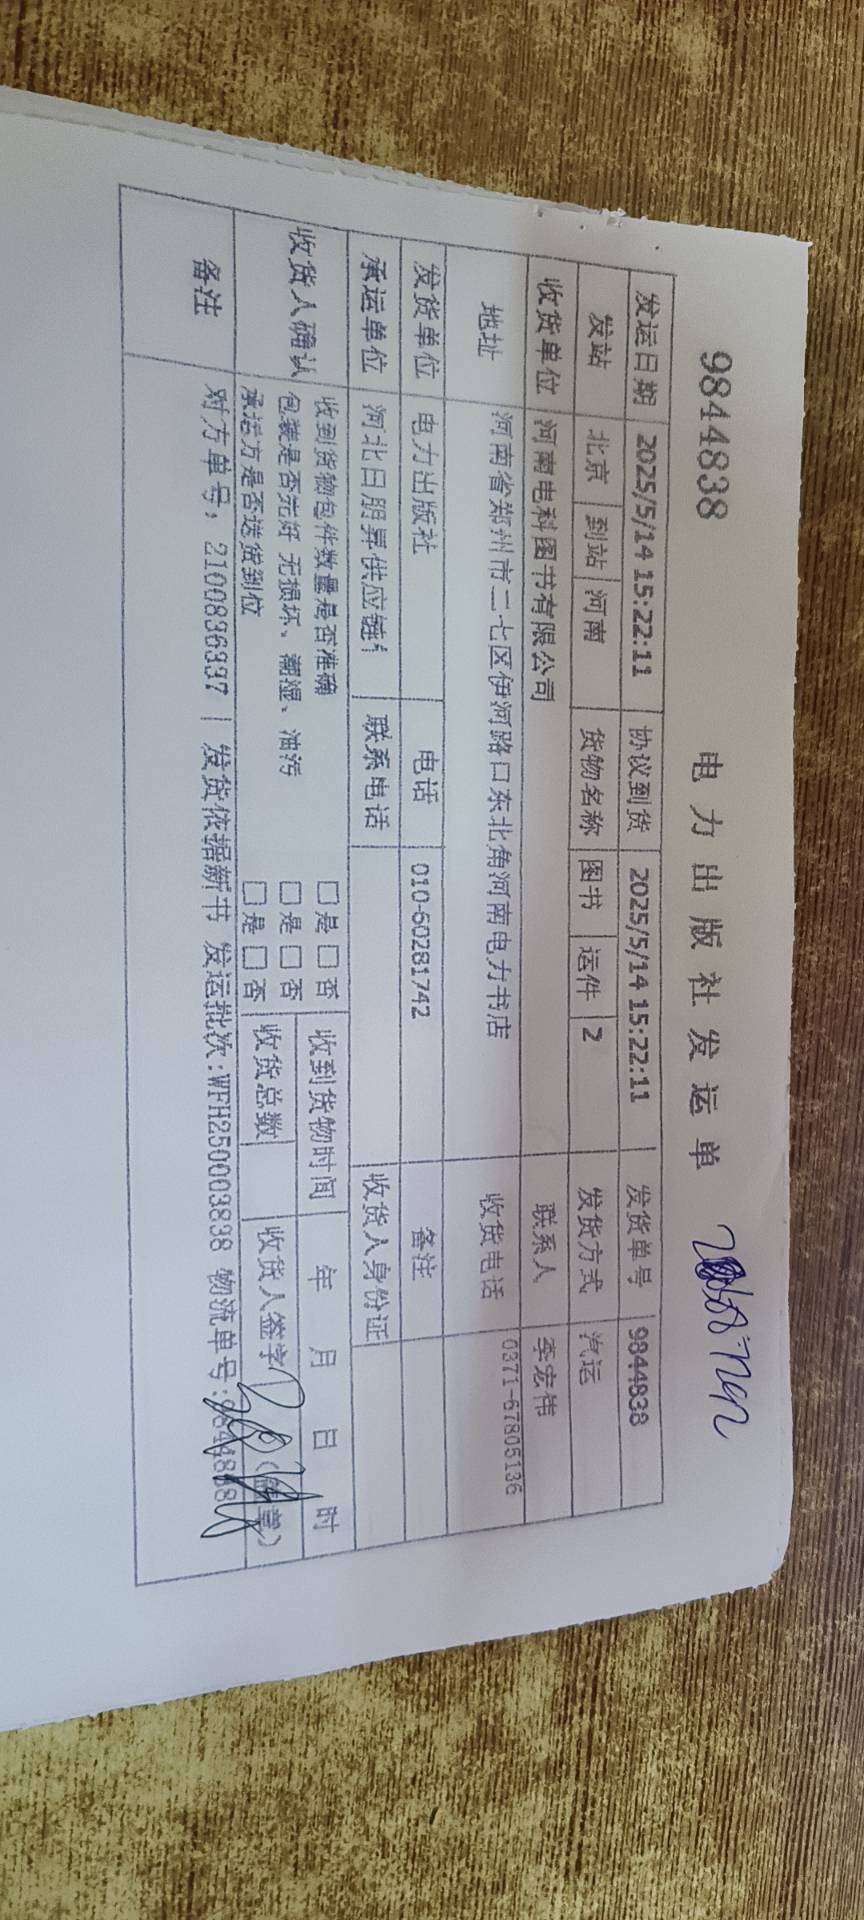 9844838
电力出版社发运单
发运日期 2025/5/14 15:22:11 协议到货 2025/5/14 15:22:11 发货单号 9844838
发站 北京 到站 河南 货物名称 图书 运件 2 发货方式 汽运
收货单位 河南电科图书有限公司 联系人 李宏伟
地址 河南省郑州市二七区伊河路口东北角河南电力书店 收货电话 0371-67805136
发货单位 电力出版社 电话 010-60281742 备注
承运单位 河北日朋昇供应链 联系电话 收货人身份证
收货人确认 收到货物包件数量是否准确 □是 □否 收到货物时间 年 月 日 时
包装是否完好 无损坏、潮湿、油污 □是 □否 收货总数 收货人签字 (盖章)
承运方是否送货到位 □是 □否
备注 对方单号：2100836397 | 发货依据新书 发运批次:WFH250003838 物流单号:9844838